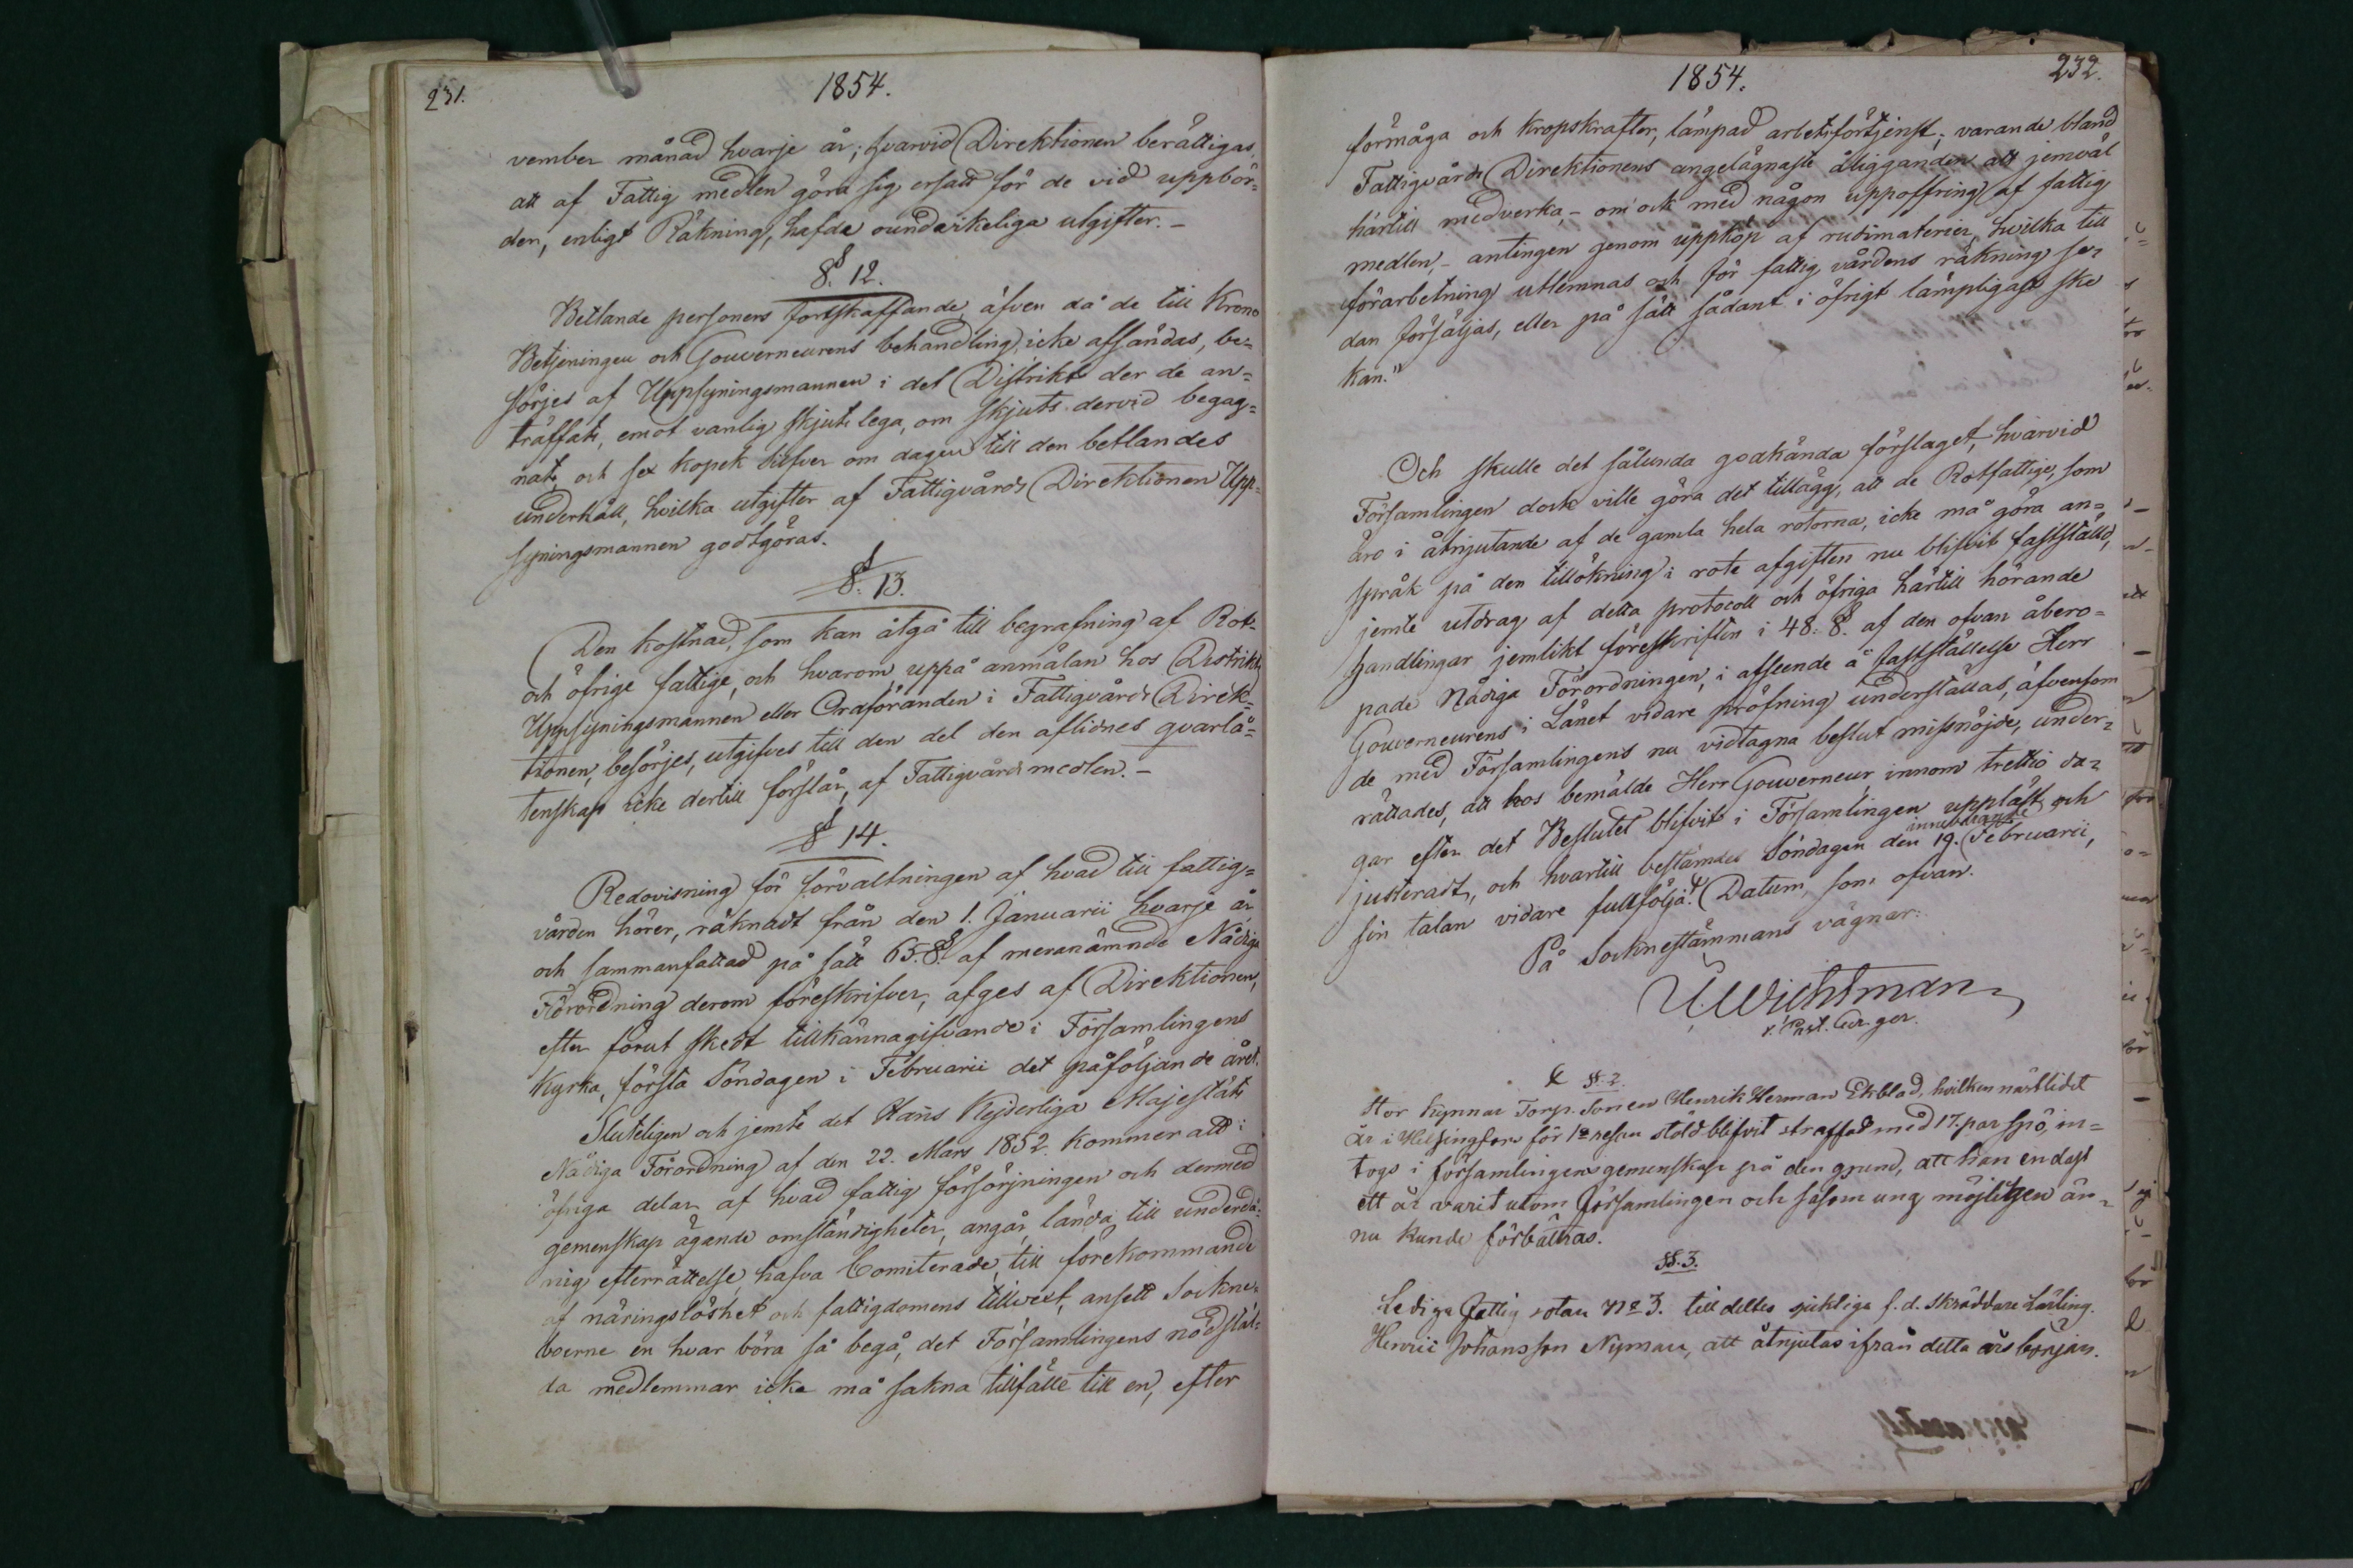 231.
1854.
vember månad hvarje år; hvarvid Direktionen berättigas,
att af Fattig medlen göra sig ersatt för de vid uppbör-
den, enligt Räkning, hafda oundvikeliga utgifter. –
§. 12.
Betlande personers fortskaffande, äfven då de till Krono
Betjeningen och Gouverneurens behandling icke afsändas, be-
sörjes af Uppsyningsmannen i det Distrikt der de an-
träffats, emot vanlig skjuts lega, om skjuts dervid begag-
nats, och sex kopek silfver om dagen till den betlandes
underhåll, hvilka utgifter af Fattigvårds Direktionen Upp-
syningsmannen godtgöras.
§. 13.
Den kostnad, som kan åtgå till begrafning af Rot-
och öfrige fattige, och hvarom, uppå anmälan hos Distrikts
Uppsyningsmannen eller Ordföranden i Fattigvårds Direk-
tionen, besörjes, utgifves till den del den aflidnes qvarlå-
tenskap icke dertill förslår, af Fattigvårds medlen. –
§ 14.
Redovisning för förvaltningen af hvad till fattig-
vården hörer, räknadt från den 1. Januarii hvarje år
och sammanfattad på sätt 65. §. af meranämnde Nådiga
Förordning derom föreskrifver, afges af Direktionen,
efter förut skedt tillkännagifvande i Församlingens
Kyrka, första Söndagen i Februarii det påföljande året.
Sluteligen och jemte det Hans Kejserliga Majestäts
Nådiga Förordning af den 22. Mars 1852. kommer att i
öfriga delar af hvad fattig försörjningen och dermed
gemenskap ägande omständigheter, angår, lända till underdå-
nig efterrättelse, hafva Comiterade, till förekommande
af näringslöshet och fattigdomens tillvext, ansett Sockne-
boerne en hvar böra så begå, det Församlingens nödstäl-
da medlemmar icke må sakna tillfälle till en, efter
1854.
232.
förmåga och kropskrafter, lämpad arbetsförtjenst; varande bland
Fattigvårds Direktionens angelägnaste åligganden att jemväl
härtill medverka, – om ock med någon uppoffring af fattig
medlen, – antingen genom uppköp af rudimaterier, hvilka till
förarbetning utlemnas och för fattig vårdens räkning se-
dan försäljas, eller på sätt sådant i öfrigt lämpligast ske
kan."
Och skulle det sålunda godkända förslaget, hvarvid
Församlingen dock ville göra det tillägg, att de Rotfattige, som
äro i åtnjutande af de gamla hela rotorna, icke må göra an-
språk på den tillökning i rote afgiften nu blifvit fastställd,
jemte utdrag af detta protocoll och öfriga härtill hörande
handlingar jemlikt föreskriften i 48. §. af den ofvan åbero-
pade Nådiga Förordningen, i afseende å fastställelse Herr
Gouverneurens i Länet vidare pröfning underställas, äfvensom
de med Församlingens nu vidtagna beslut missnöjde, under-
rättades, att hos bemälde Herr Gouverneur innom trettio da-
gar efter det Beslutet blifvit i Församlingen uppläst och
justeradt, och hvartill bestämdes Söndagen den 19. innevarande Februarii,
sin talan vidare fullfölja. Datum, som ofvan.
På Socknestämmans vägnar:
Wichtman
v. Past. Cur. ger.
§. 2.
Stor Kynnar Torp. Sonen Henrik Herman Ekblad, hvilken nästlidet
år i Helsingfors för 1a resan stöld blifvit straffad med 17. par spö, in-
togs i församlingens gemenskap på den grund, att han endast
ett år varit utom församlingen och såsom ung möjligen än-
nu kunde förbättras.
§. 3.
Lediga fattig rotan No 3. till deltes sjukliga f. d. skräddare Lärling.
Henric Johansson Nyman, att åtnjutas ifrån detta års början.